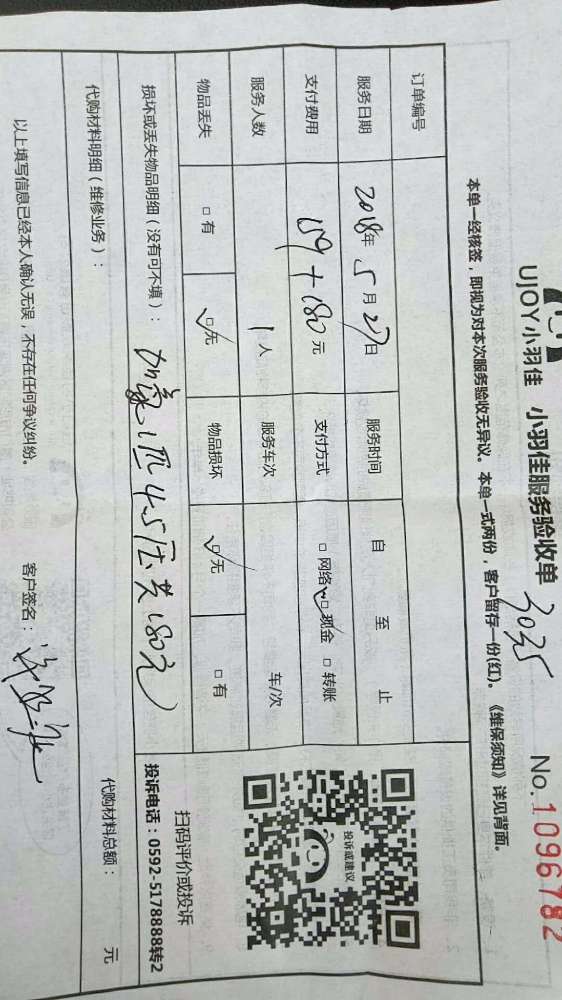 UJOY小羽佳 小羽佳服务验收单 No.1096782
3035
本单一经核签，即视为对本次服务验收无异议。本单一式两份，客户留存一份(红)。《维保须知》详见背面。
订单编号
服务日期 2018年 5月27日 服务时间 自 至 止
支付费用 159+180元 支付方式 □网络 ☑现金 □转账
服务人数 1人 服务车次 车/次
物品丢失 □有 ☑无 物品损坏 ☑无 □有
损坏或丢失物品明细（没有可不填）：
加氟1匹4.5压共180元
代购材料明细（维修业务）： 代购材料总额： 元
投诉或建议
扫码评价或投诉
投诉电话：0592-5178888转2
以上填写信息已经本人确认无误，不存在任何争议纠纷。 客户签名：